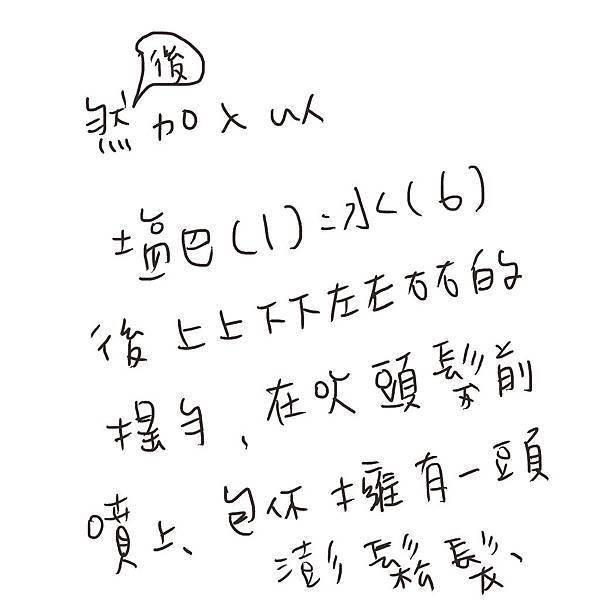 然後加入以
塩巴(1):水(6)
後上上下下左左右右的
擺手、在吹頭髮前
噴上、包你擁有一頭
澎鬆髮、